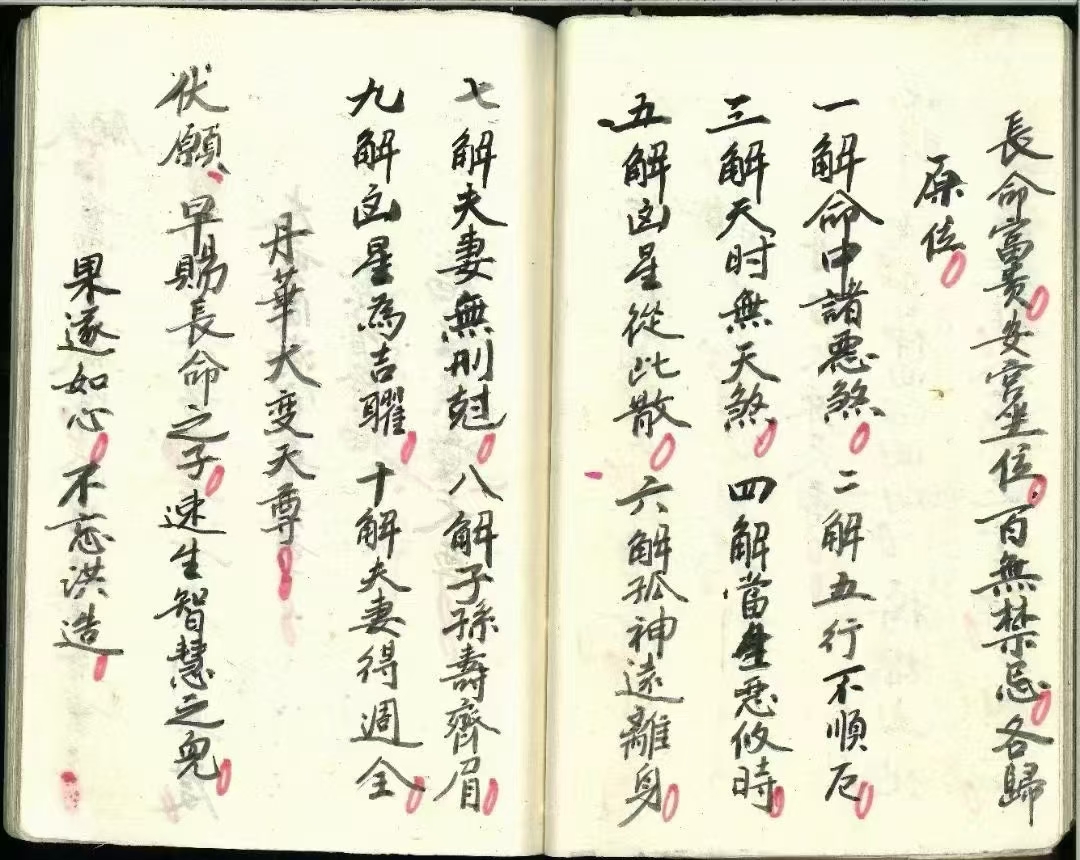 長命富贵安宫坐位百無禁忌各歸
原位
一解命中諸惡煞 二解五行不順厄
三解天时無天煞 四解當生惡攸時
五解凶星從此散 六解孤神遠離身
七解夫妻無刑尅 八解子孫壽齊眉
九解凶星為吉耀 十解夫妻得週全
丹華大变天尊
伏願 早賜長命之子速生智慧之兒
果遂如心 不忘洪造